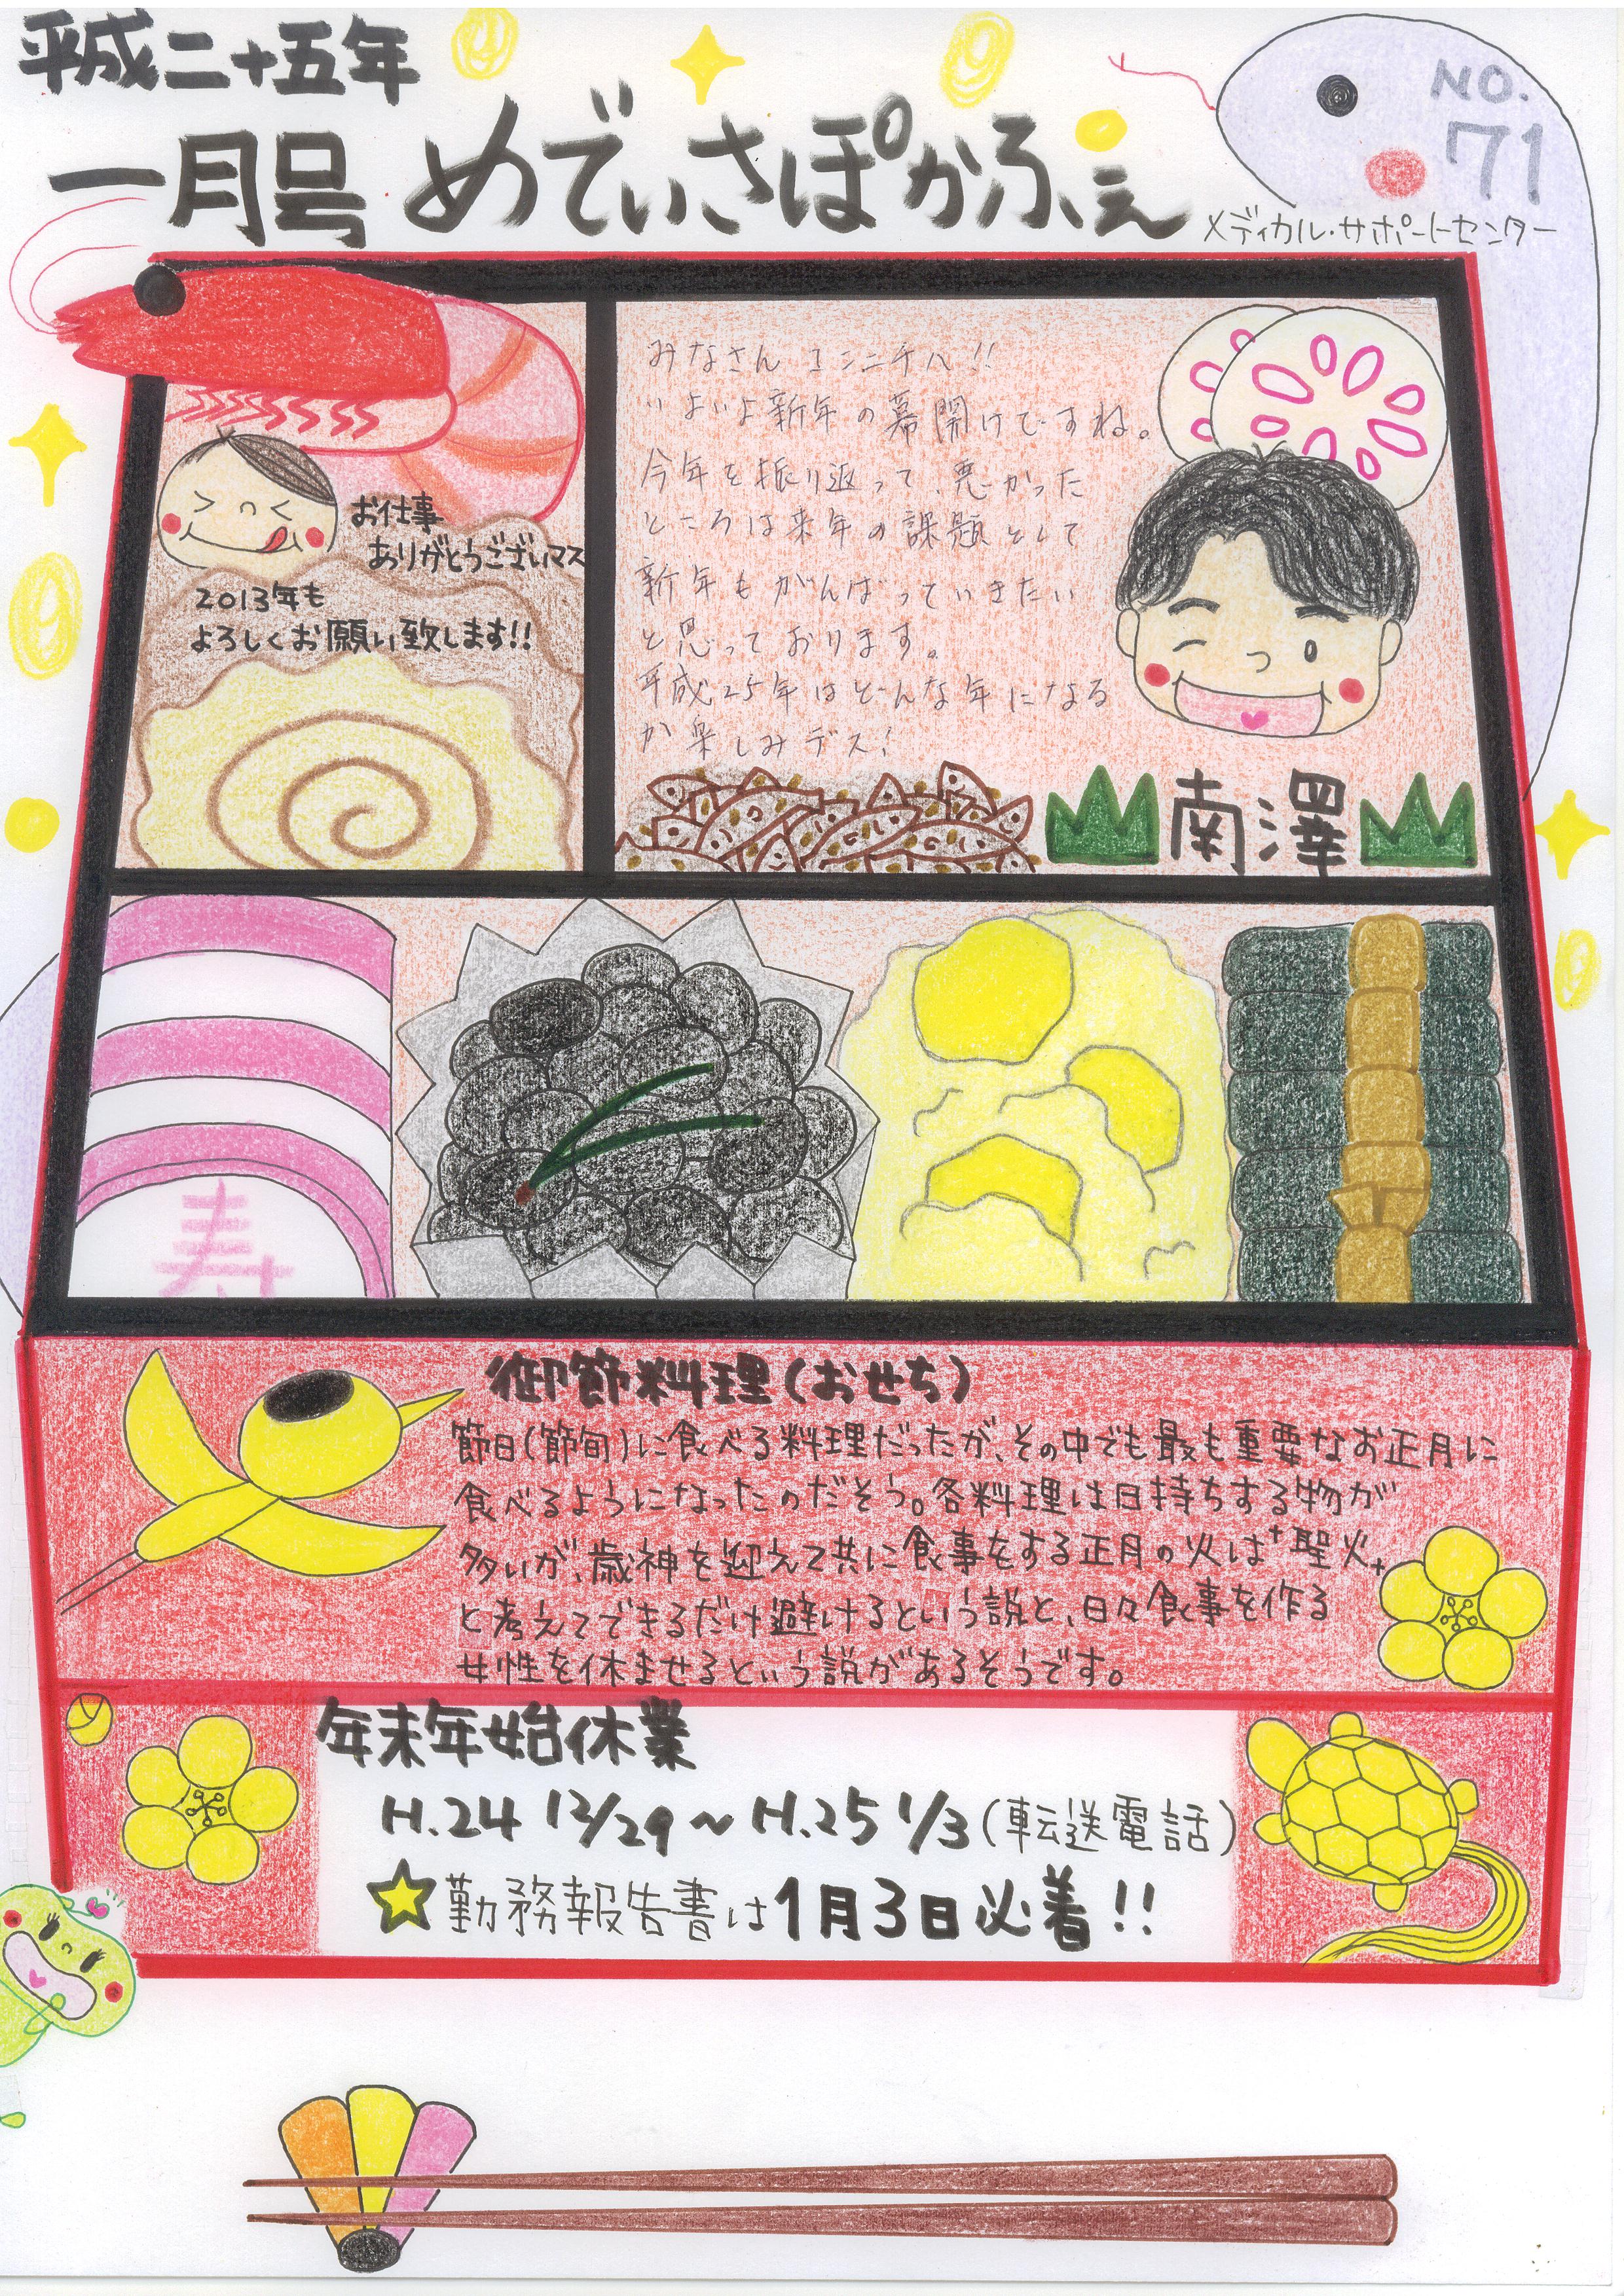 平成二十五年
一月号 めでぃさぽかふぇ
NO.
71
メディカル・サポートセンター
お仕事
ありがとうございマス
2013年も
よろしくお願い致します!!
みなさん コンニチハ!!
いよいよ新年の幕開けですね。
今年を振り返って、悪かった
ところは来年の課題として
新年もがんばっていきたい
と思っております。
平成25年はどんな年になる
か楽しみデス!
南澤
寿
御節料理(おせち)
節日(節旬)に食べる料理だったが、その中でも最も重要なお正月に
食べるようになったのだそう。各料理は日持ちする物が
多いが、歳神を迎えて共に食事をする正月の火は"聖火"
と考えてできるだけ避けるという説と、日々食事を作る
女性を休ませるという説があるそうです。
年末年始休業
H.24 12/29~H.25 1/3(転送電話)
勤務報告書は1月3日必着!!